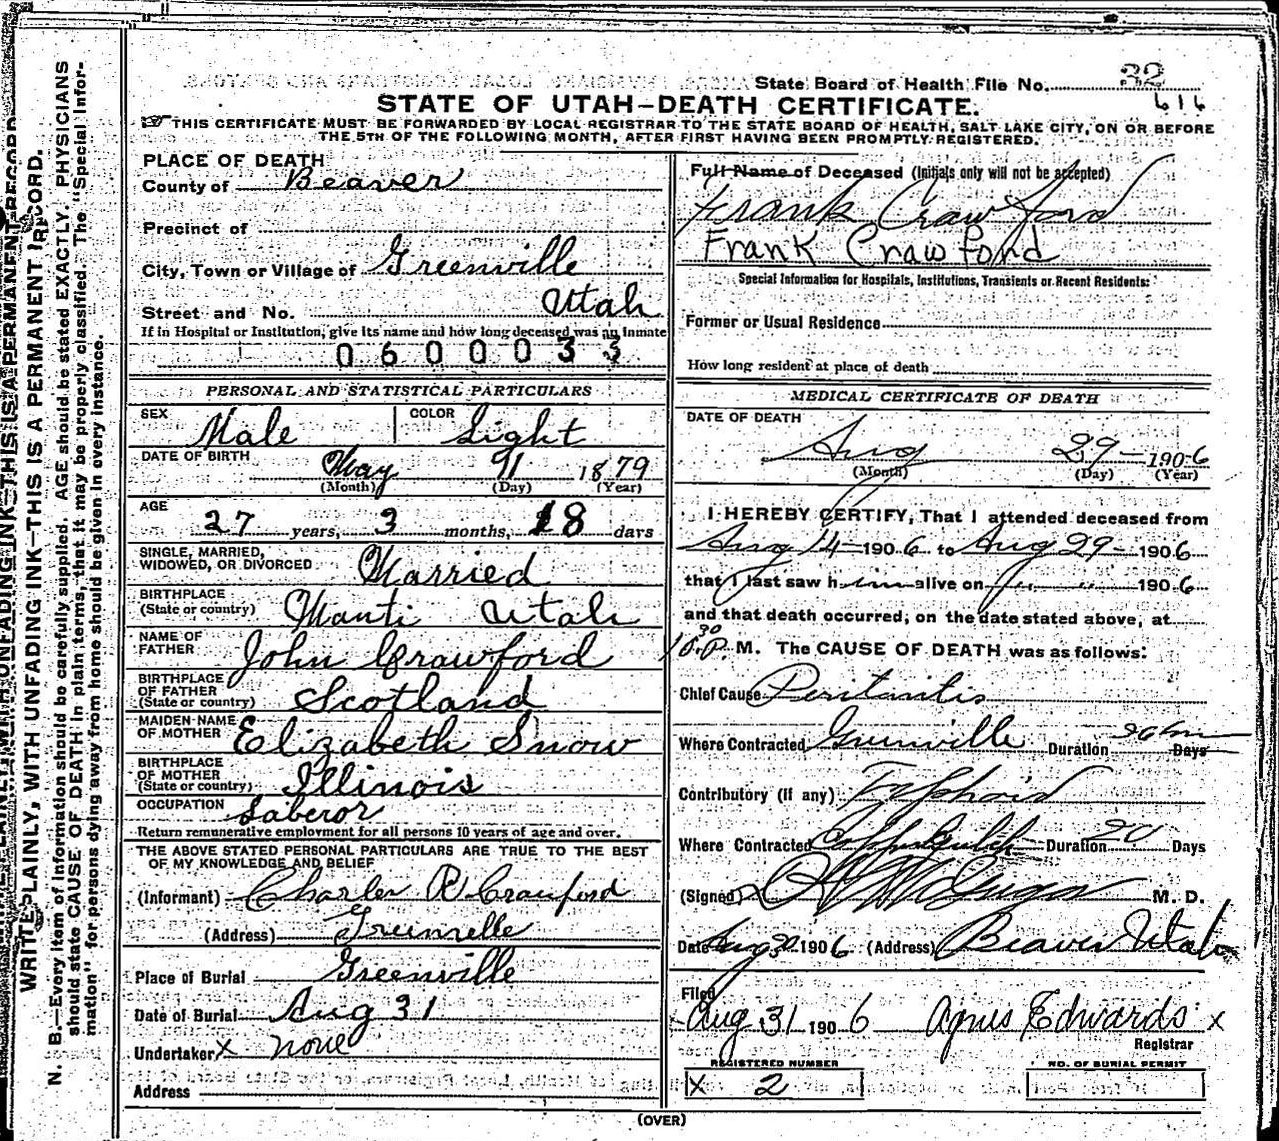 State Board of Health File No. 32
616
STATE OF UTAH—DEATH CERTIFICATE.
THIS CERTIFICATE MUST BE FORWARDED BY LOCAL REGISTRAR TO THE STATE BOARD OF HEALTH, SALT LAKE CITY, ON OR BEFORE
THE 5TH OF THE FOLLOWING MONTH, AFTER FIRST HAVING BEEN PROMPTLY REGISTERED.
PLACE OF DEATH
County of Beaver
Precinct of
City, Town or Village of Greenville
Utah
Street and No.
If in Hospital or Institution, give its name and how long deceased was an inmate
0600033
PERSONAL AND STATISTICAL PARTICULARS
SEX Male COLOR Light
DATE OF BIRTH May 11 1879
(Month) (Day) (Year)
AGE 27 years, 3 months, 18 days
SINGLE, MARRIED,
WIDOWED, OR DIVORCED Married
BIRTHPLACE
(State or country) Manti Utah
NAME OF
FATHER John Crawford
BIRTHPLACE
OF FATHER
(State or country) Scotland
MAIDEN NAME
OF MOTHER Elizabeth Snow
BIRTHPLACE
OF MOTHER
(State or country) Illinois
OCCUPATION Laberor
Return remunerative employment for all persons 10 years of age and over.
THE ABOVE STATED PERSONAL PARTICULARS ARE TRUE TO THE BEST
OF MY KNOWLEDGE AND BELIEF
(Informant) Charles R Crawford
(Address) Greenville
Place of Burial Greenville
Date of Burial Aug 31
Undertaker x none
Address
Full Name of Deceased (Initials only will not be accepted)
Frank Crawford
Frank Crawford
Special Information for Hospitals, Institutions, Transients or Recent Residents:
Former or Usual Residence
How long resident at place of death
MEDICAL CERTIFICATE OF DEATH
DATE OF DEATH
Aug 29 - 1906
(Month) (Day) (Year)
I HEREBY CERTIFY, That I attended deceased from
Aug 14 - 1906 to Aug 29 - 1906
that I last saw him alive on " " 1906
and that death occurred, on the date stated above, at
10.30 P. M. The CAUSE OF DEATH was as follows:
Chief Cause Peritonitis
Where Contracted Greenville Duration Days
Contributory (if any) Typhoid
Where Contracted Duration 20 Days
(Signed) M. D.
Date Aug 30 1906 (Address) Beaver Utah
Filed
Aug 31 1906 Agnes Edwards x
Registrar
REGISTERED NUMBER
x 2
NO. OF BURIAL PERMIT
(OVER)
WRITE PLAINLY, WITH UNFADING INK—THIS IS A PERMANENT RECORD.
N. B.—Every item of information should be carefully supplied. AGE should be stated EXACTLY. PHYSICIANS
should state CAUSE OF DEATH in plain terms, that it may be properly classified. The "Special Infor-
mation" for persons dying away from home should be given in every instance.